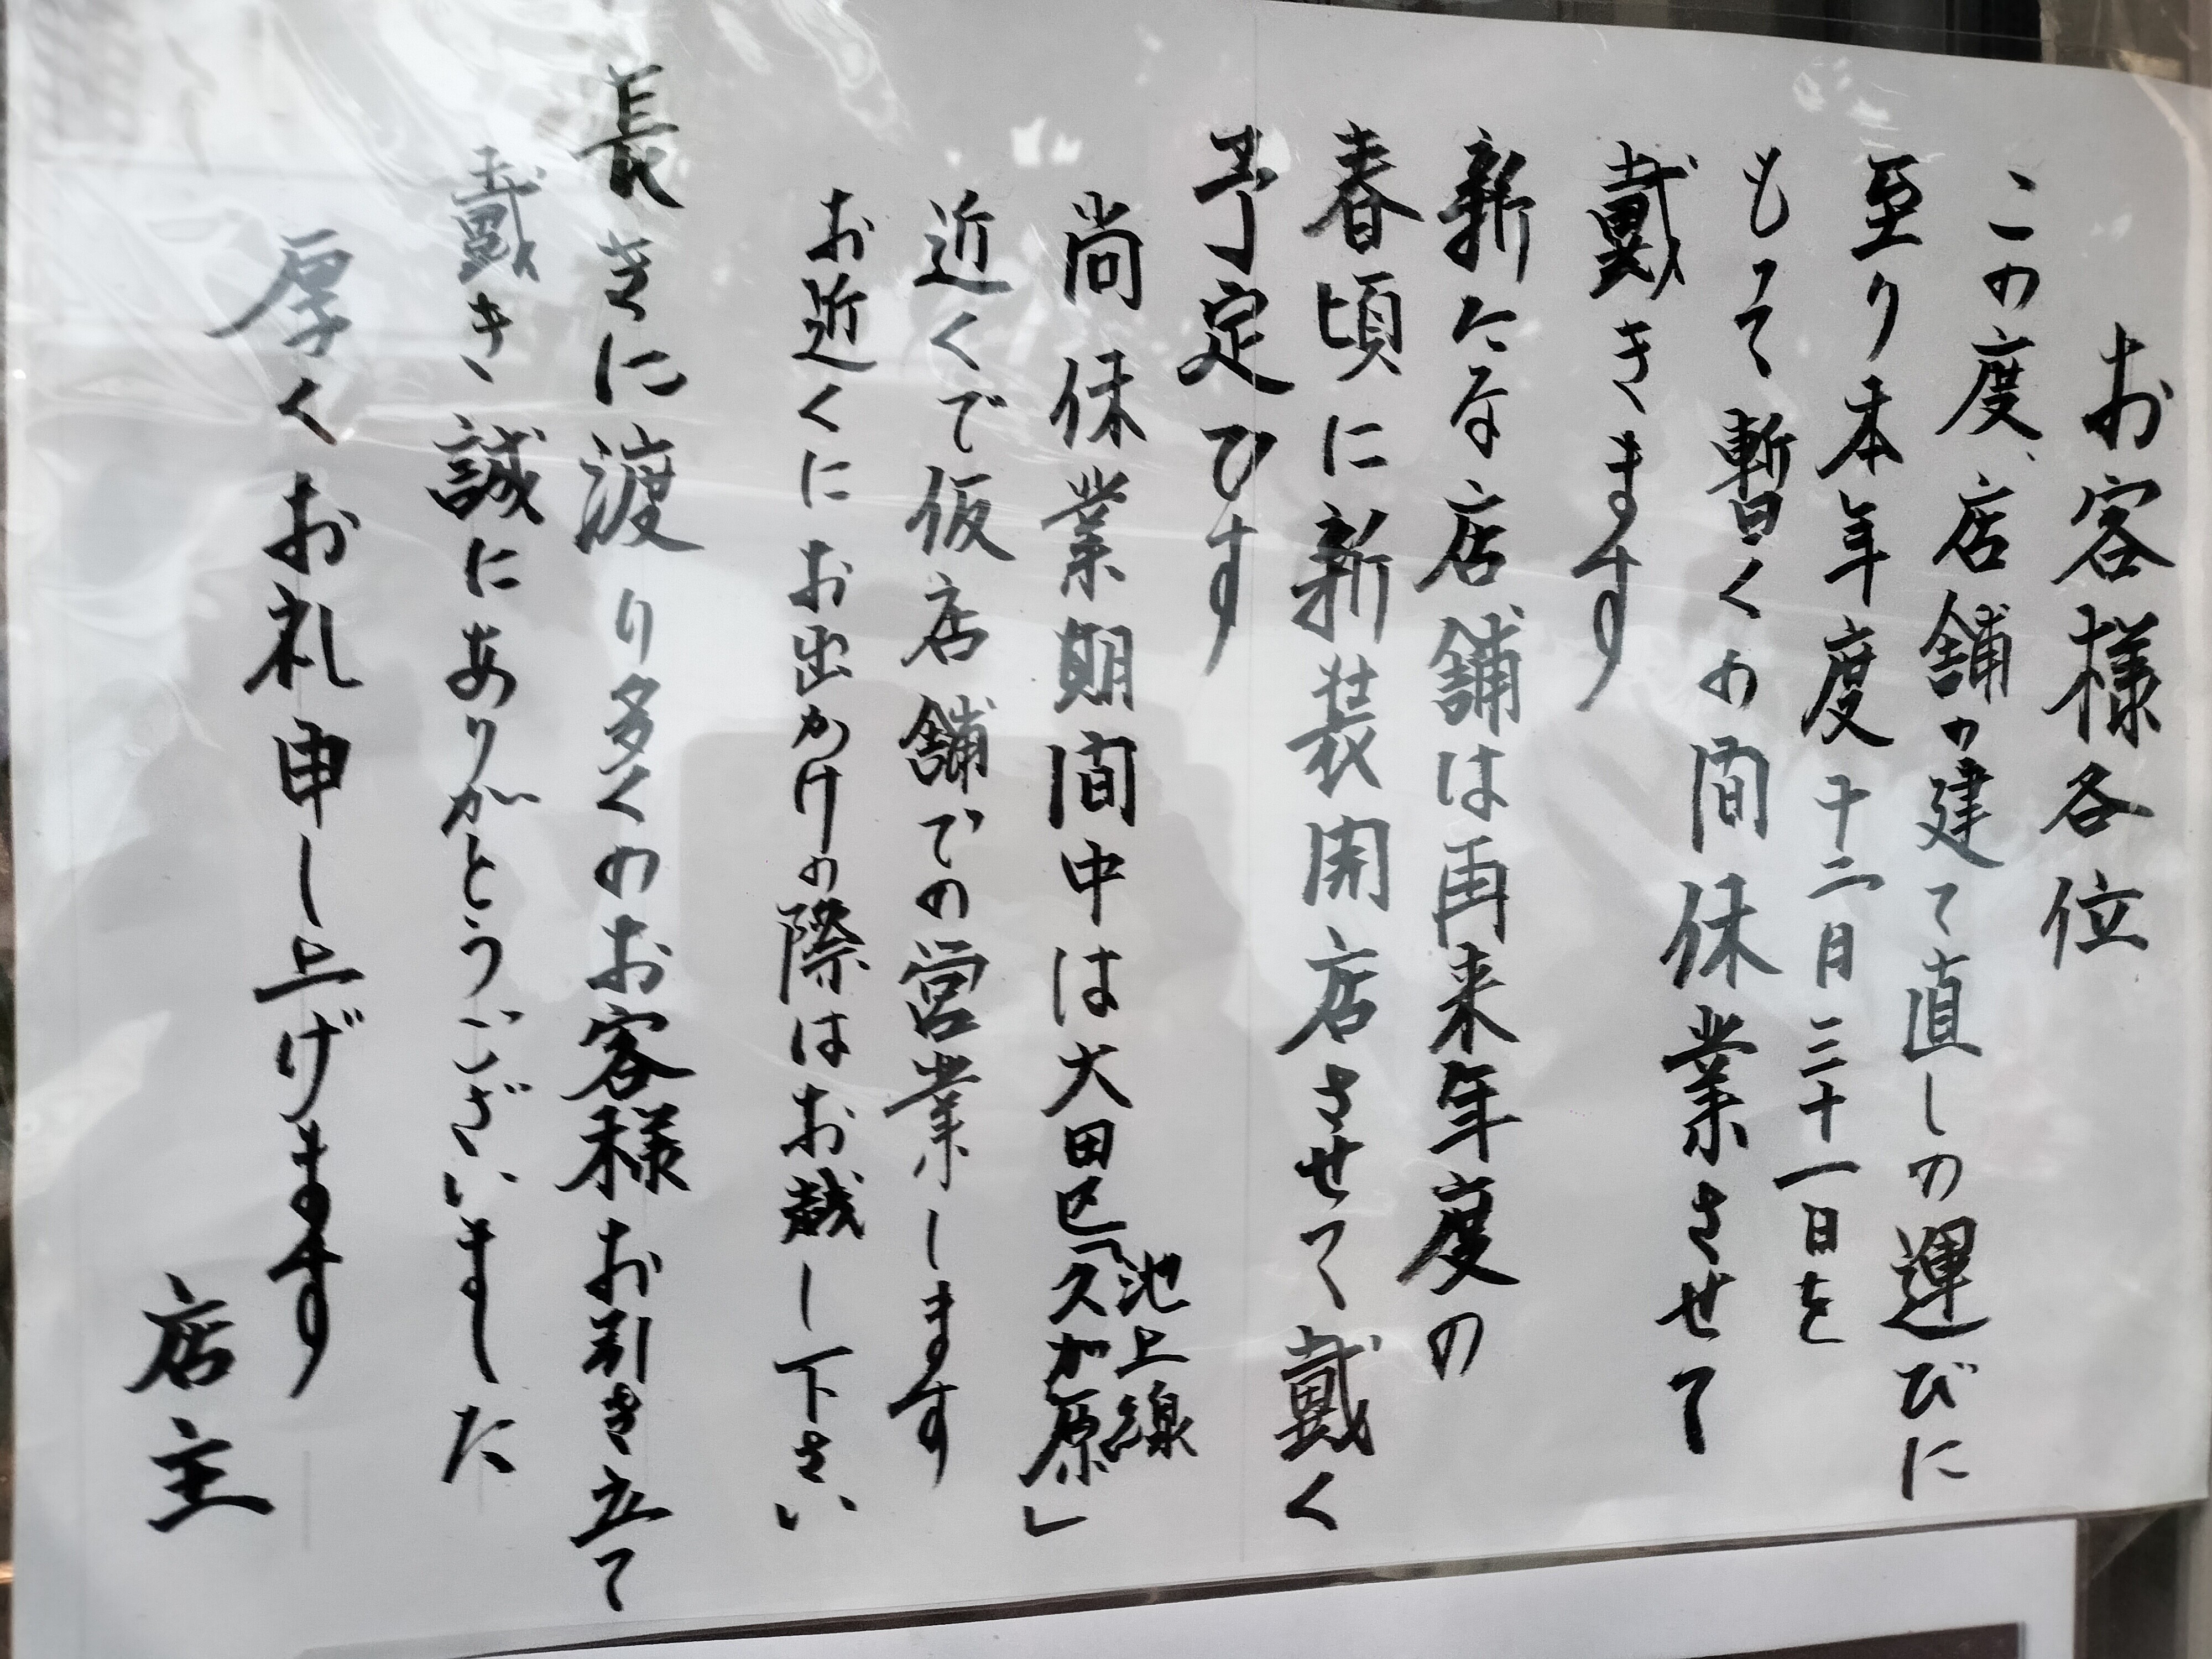 お客様各位
この度、店舗の建て直しの運びに
至り本年度十二月三十一日を
もって暫くの間休業させて
戴きます
新たな店舗は再来年度の
春頃に新装開店させて戴く
予定です
尚休業期間中は大田区「池上線
久が原」
近くで仮店舗での営業します
お近くにお出かけの際はお越し下さい
長きに渡り多くのお客様お引き立て
戴き誠にありがとうございました
厚くお礼申し上げます
店主